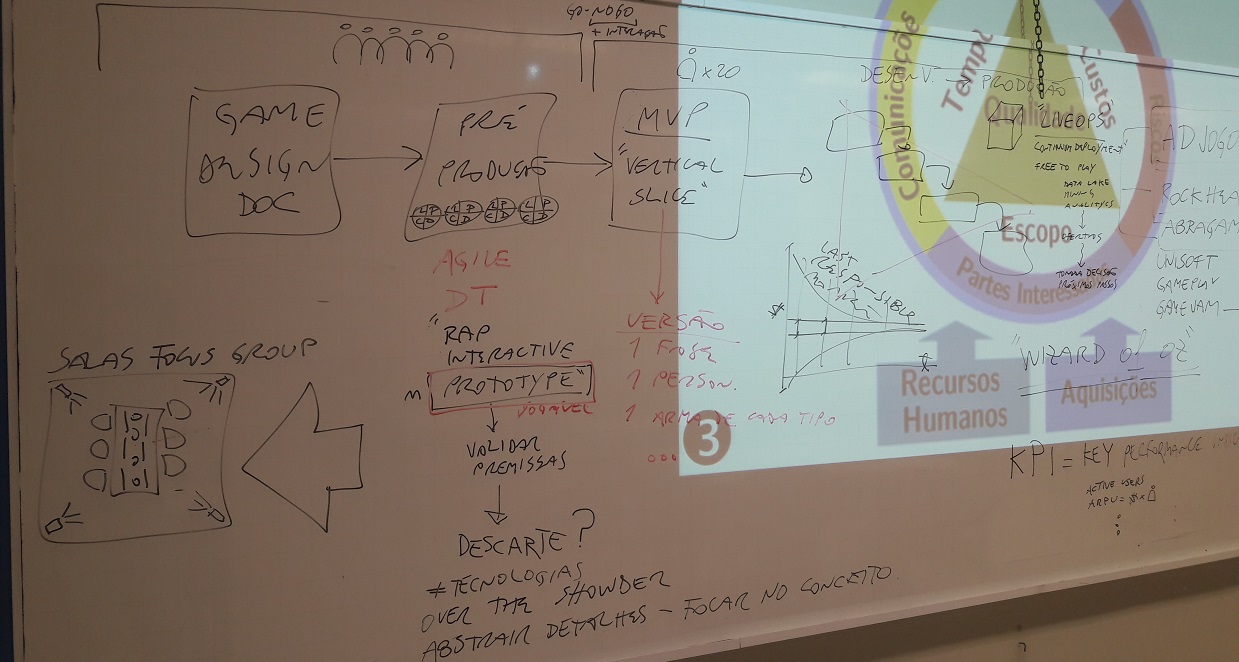 GO-NOGO
+ INTERAÇÃO
x20
GAME
DESIGN
DOC
PRÉ
PRODUÇÃO
MVP
"VERTICAL
SLICE"
DESENV.
PRODUÇÃO
"LIVEOPS"
CONTINUOUS DEPLOYMENT"
FREE TO PLAY
DATA LAKE
MINING
ANALITYCS
TOMAR DECISÃO
PRÓXIMOS PASSOS
ADJOGO
ROCKHEA
ABRAGAM
UNISOFT
GAMEPLAY
Comunicações
Tempo
Custos
Qualidade
Escopo
Partes Interess
Recursos
Humanos
Aquisições
3
LAST
RESPONSIBLE
AGILE
DT
"RAP
INTERACTIVE
M PROTOTYPE"
JOGÁVEL
VALIDAR
PREMISSAS
DESCARTE?
≠ TECNOLOGIAS
OVER THE SHOWDER
ABSTRAIR DETALHES - FOCAR NO CONCEITO.
VERSÃO
1 FASE
1 PERSON.
1 ARMA DE CADA TIPO
...
SALAS FOCUS GROUP
"WIZARD of OZ"
KPI = KEY PERFORMANCE
ACTIVE USERS
ARPU = $ x